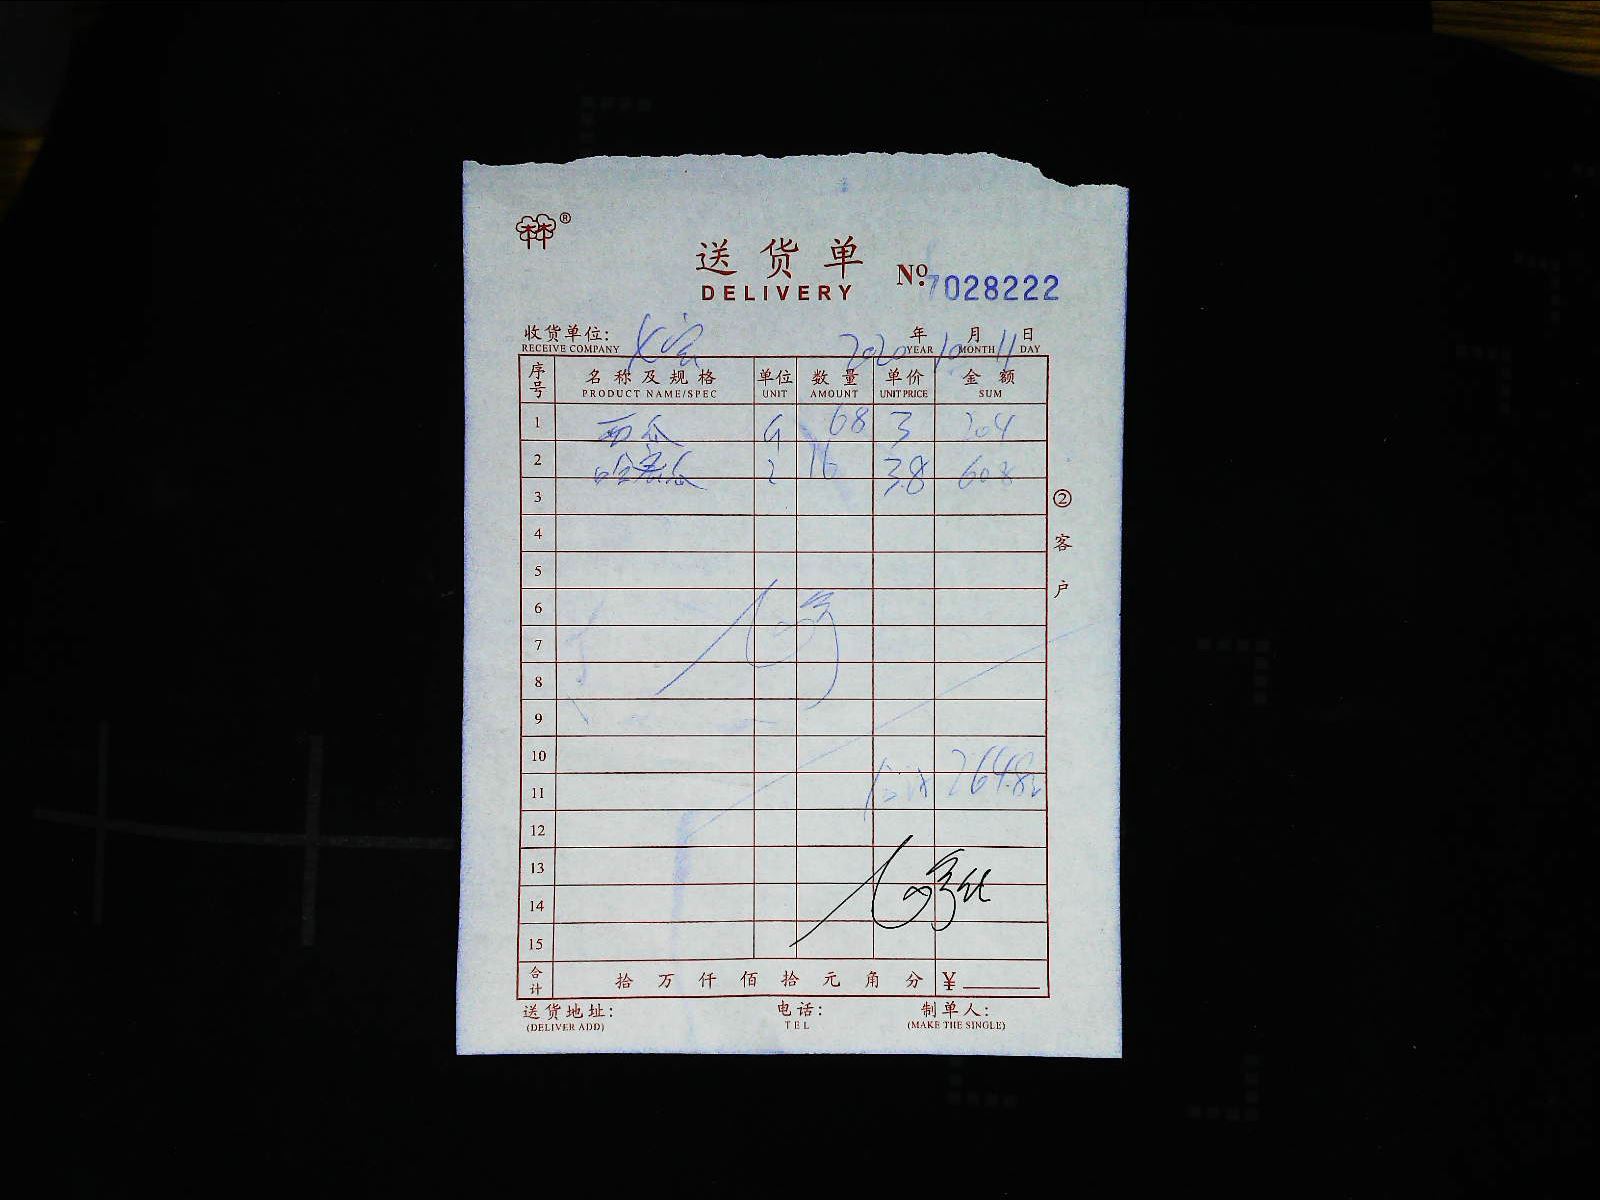 ®
送货单
DELIVERY
№ 7028222
收货单位: 2020年10月11日
RECEIVE COMPANY YEAR MONTH DAY
序号 名称及规格 单位 数量 单价 金额
PRODUCT NAME/SPEC UNIT AMOUNT UNIT PRICE SUM
1 西瓜 68 3 204
2 哈密瓜 2 16 3.8 60.8
3
4
5
6
7
8
9
10
11 合计 264.8元
12
13
14
15
合计 拾 万 仟 佰 拾 元 角 分 ¥
送货地址: 电话: 制单人:
(DELIVER ADD) TEL (MAKE THE SINGLE)
② 客户